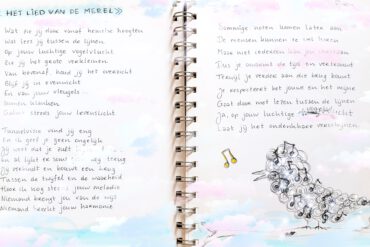 HET LIED VAN DE MEREL
Wat zie jij daar vanaf hemelse hoogten
Wat lees jij tussen de lijnen
Op jouw luchtige vogelvlucht
En zij het grote verkleinen
Van bovenaf, hand jij het overzicht
Blijf jij in evenwicht
En van jouw vleugels
banen blanken
steeds jouw levenslicht
Tunnelvisie vind jij eng
En ik geef je geen ongelijk
Jij weet dat je zult
En al lijkt er soms terug
Jij verbindt en bouwt een brug
Tussen de twijfel en de waarheid
Hoor ik nog steeds jouw melodie
Niemand brengt jou van de wijs
Niemand breekt jouw harmonie
Sommige noten komen laten aan
De mensen kunnen ze niet lezen
Maar niet iedereen kan
Dus je omarmt de tijd en vertraagt
Terwijl je verder aan die brug bouwt
Je respecteert het jouwe en het mijne
Gaat door met lezen tussen de lijnen
Ja, op jouw luchtige
Laat jij het ondenkbare verschijnen